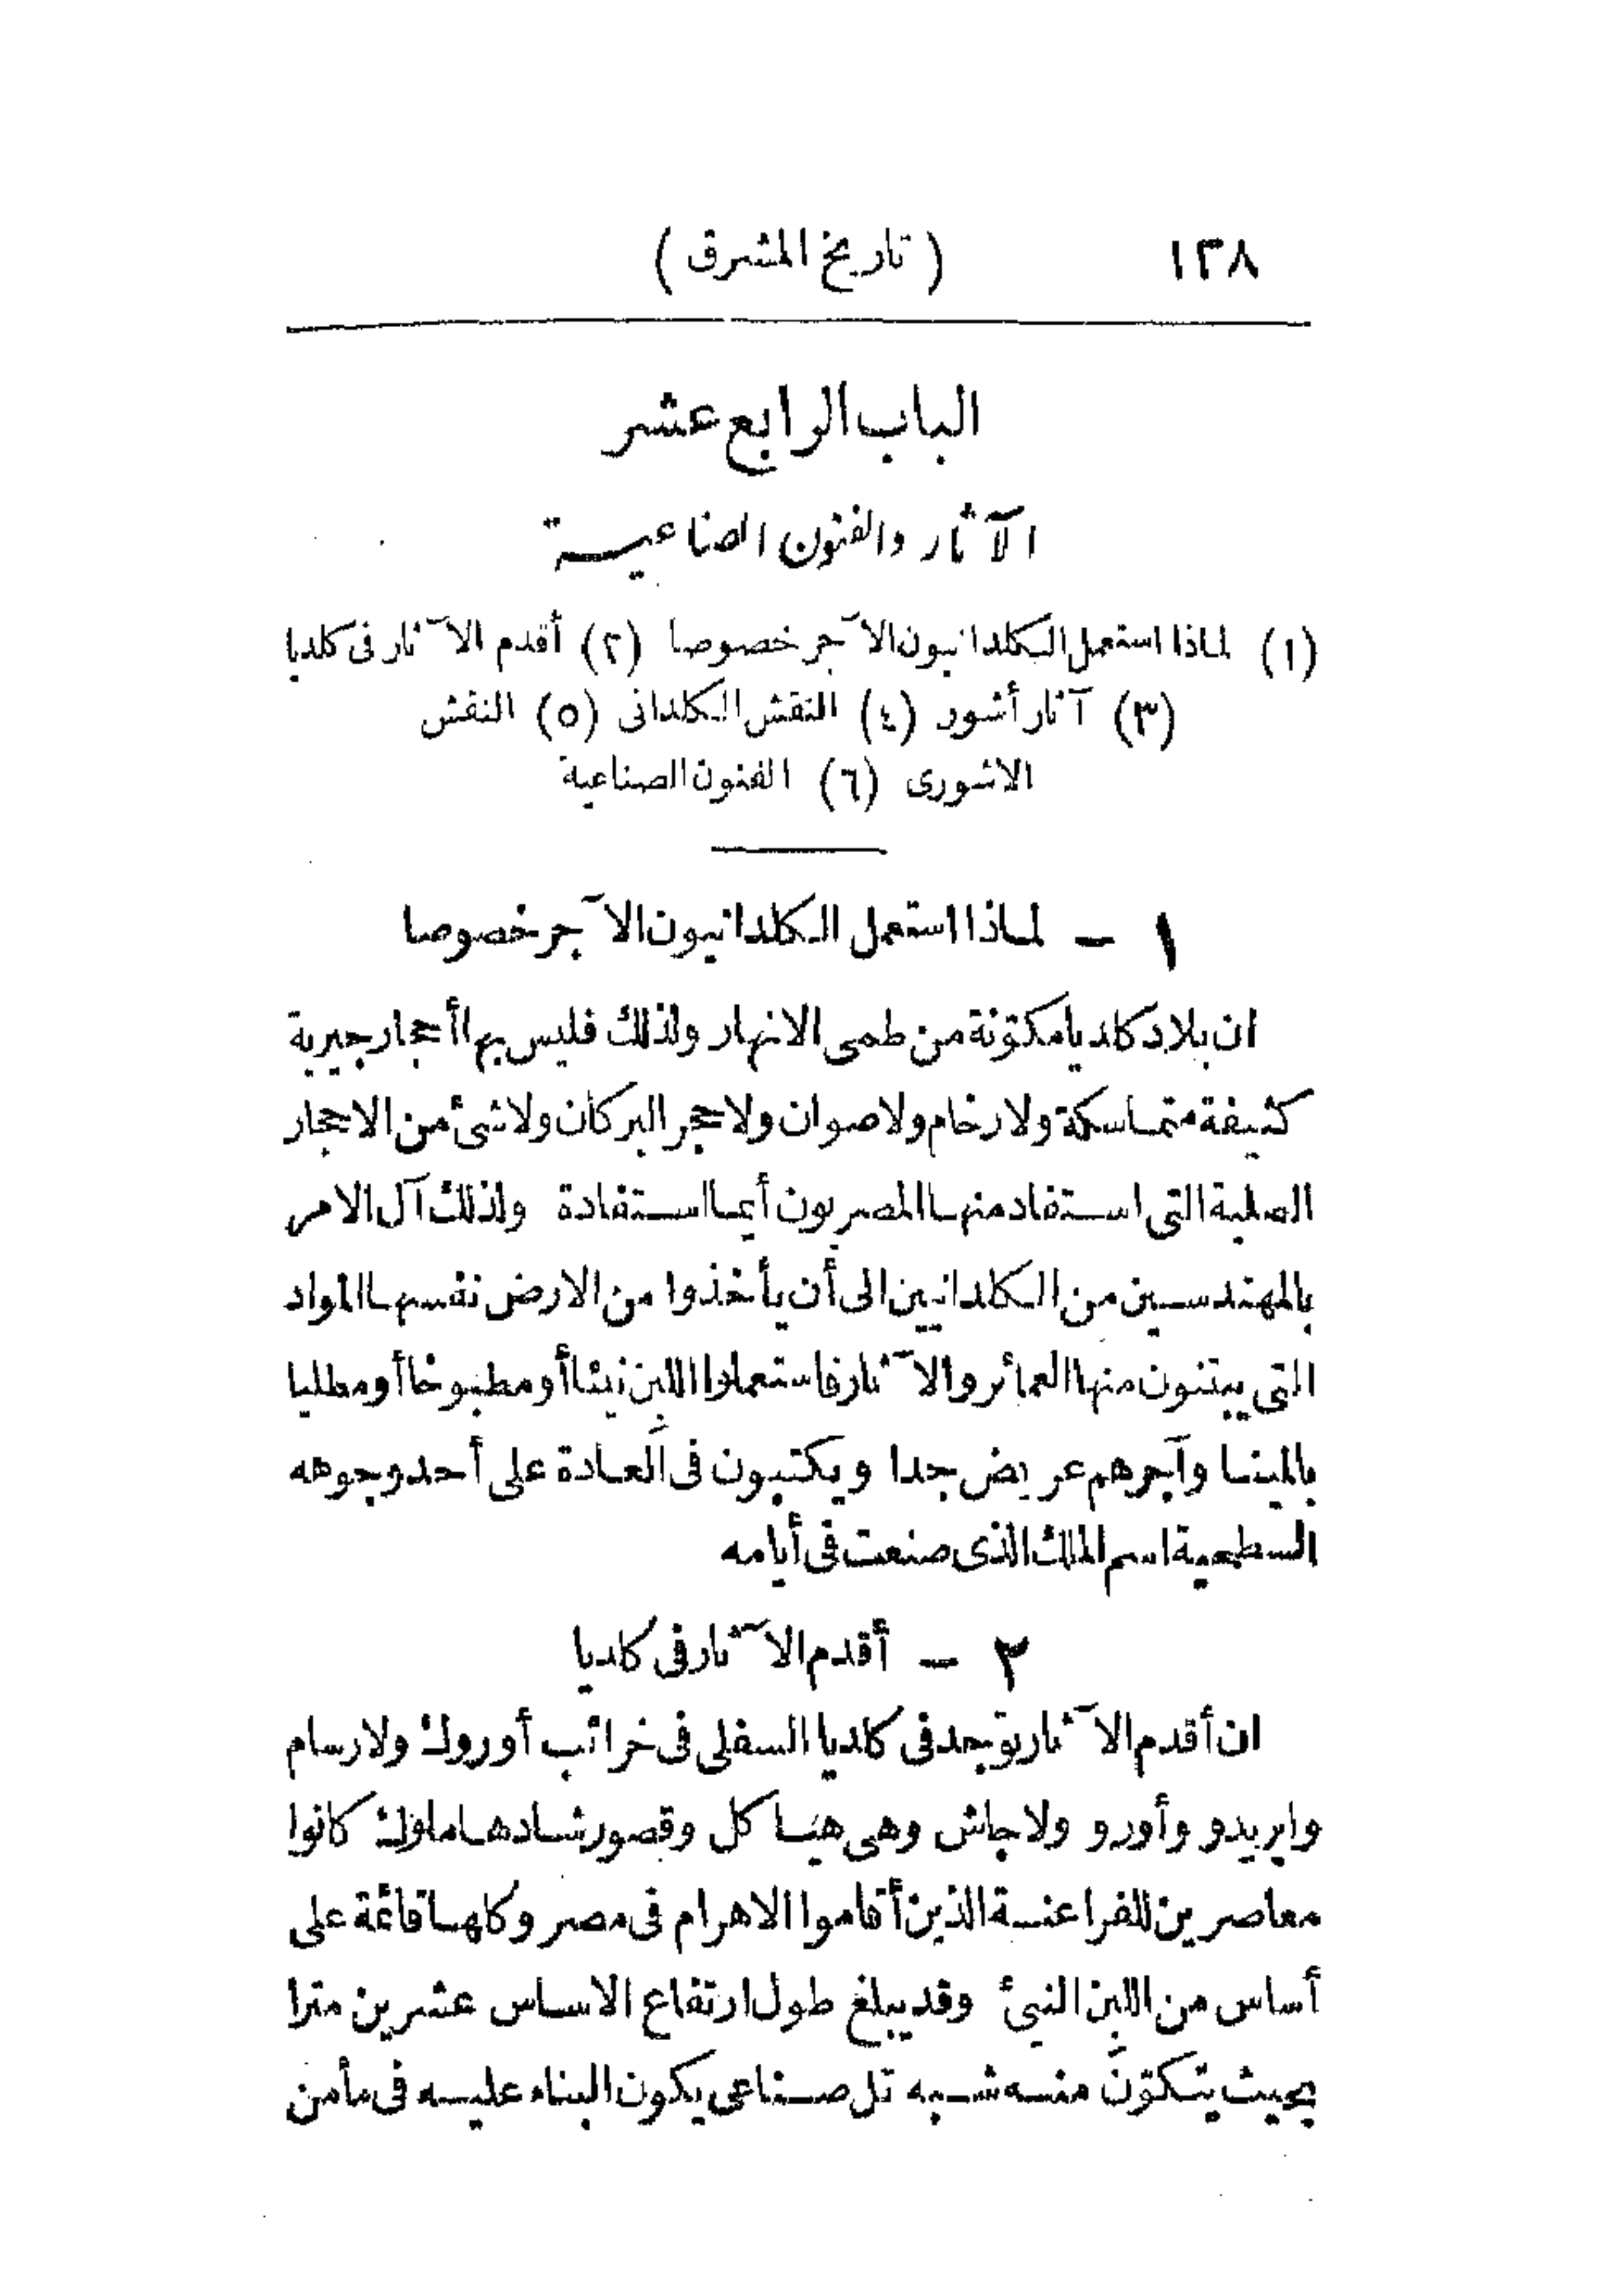 ١٣٨ ( تاريخ المشرق )
الباب الرابع عشر
الآثار والفنون الصناعية
(١) لماذا استعمل الكلدانيون الآجر خصوصا (٢) أقدم الآثار فى كلديا
(٣) آثار أشور (٤) النقش الكلدانى (٥) النقش
الاشورى (٦) الفنون الصناعية
١ - لماذا استعمل الكلدانيون الآجر خصوصا
ان بلاد كلديا مكوّنة من طمى الانهار ولذلك فليس بها أحجار جيرية
كثيفة متماسكة ولا رخام ولا صوان ولا حجر البركان ولا شئ من الاحجار
الصلبة التى استفاد منها المصريون أيما استفادة ولذلك آل الامر
بالمهندسين من الكلدانيين الى أن يأخذوا من الارض نفسها المواد
التى يبتنون منها العمائر والآثار فاستعملوا اللبِن نيئا أو مطبوخا أو مطليا
بالمينا وآجرهم عريض جدا ويكتبون فى العادة على أحد وجوهه
السطحية اسم الملك الذى صنعت فى أيامه
٢ - أقدم الآثار فى كلديا
ان أقدم الآثار توجد فى كلديا السفلى فى خرائب أوروك ولارسام
وايريدو وأورو ولاجاش وهى هيا كل وقصور شادها ملوك كانوا
معاصرين للفراعنة الذين أقاموا الاهرام فى مصر وكلها قائمة على
أساس من اللبِن النيئ وقد يبلغ طول ارتفاع الاساس عشرين مترا
بحيث يتكوّن منه شبه تل صناعى يكون البناء عليه فى مأمن